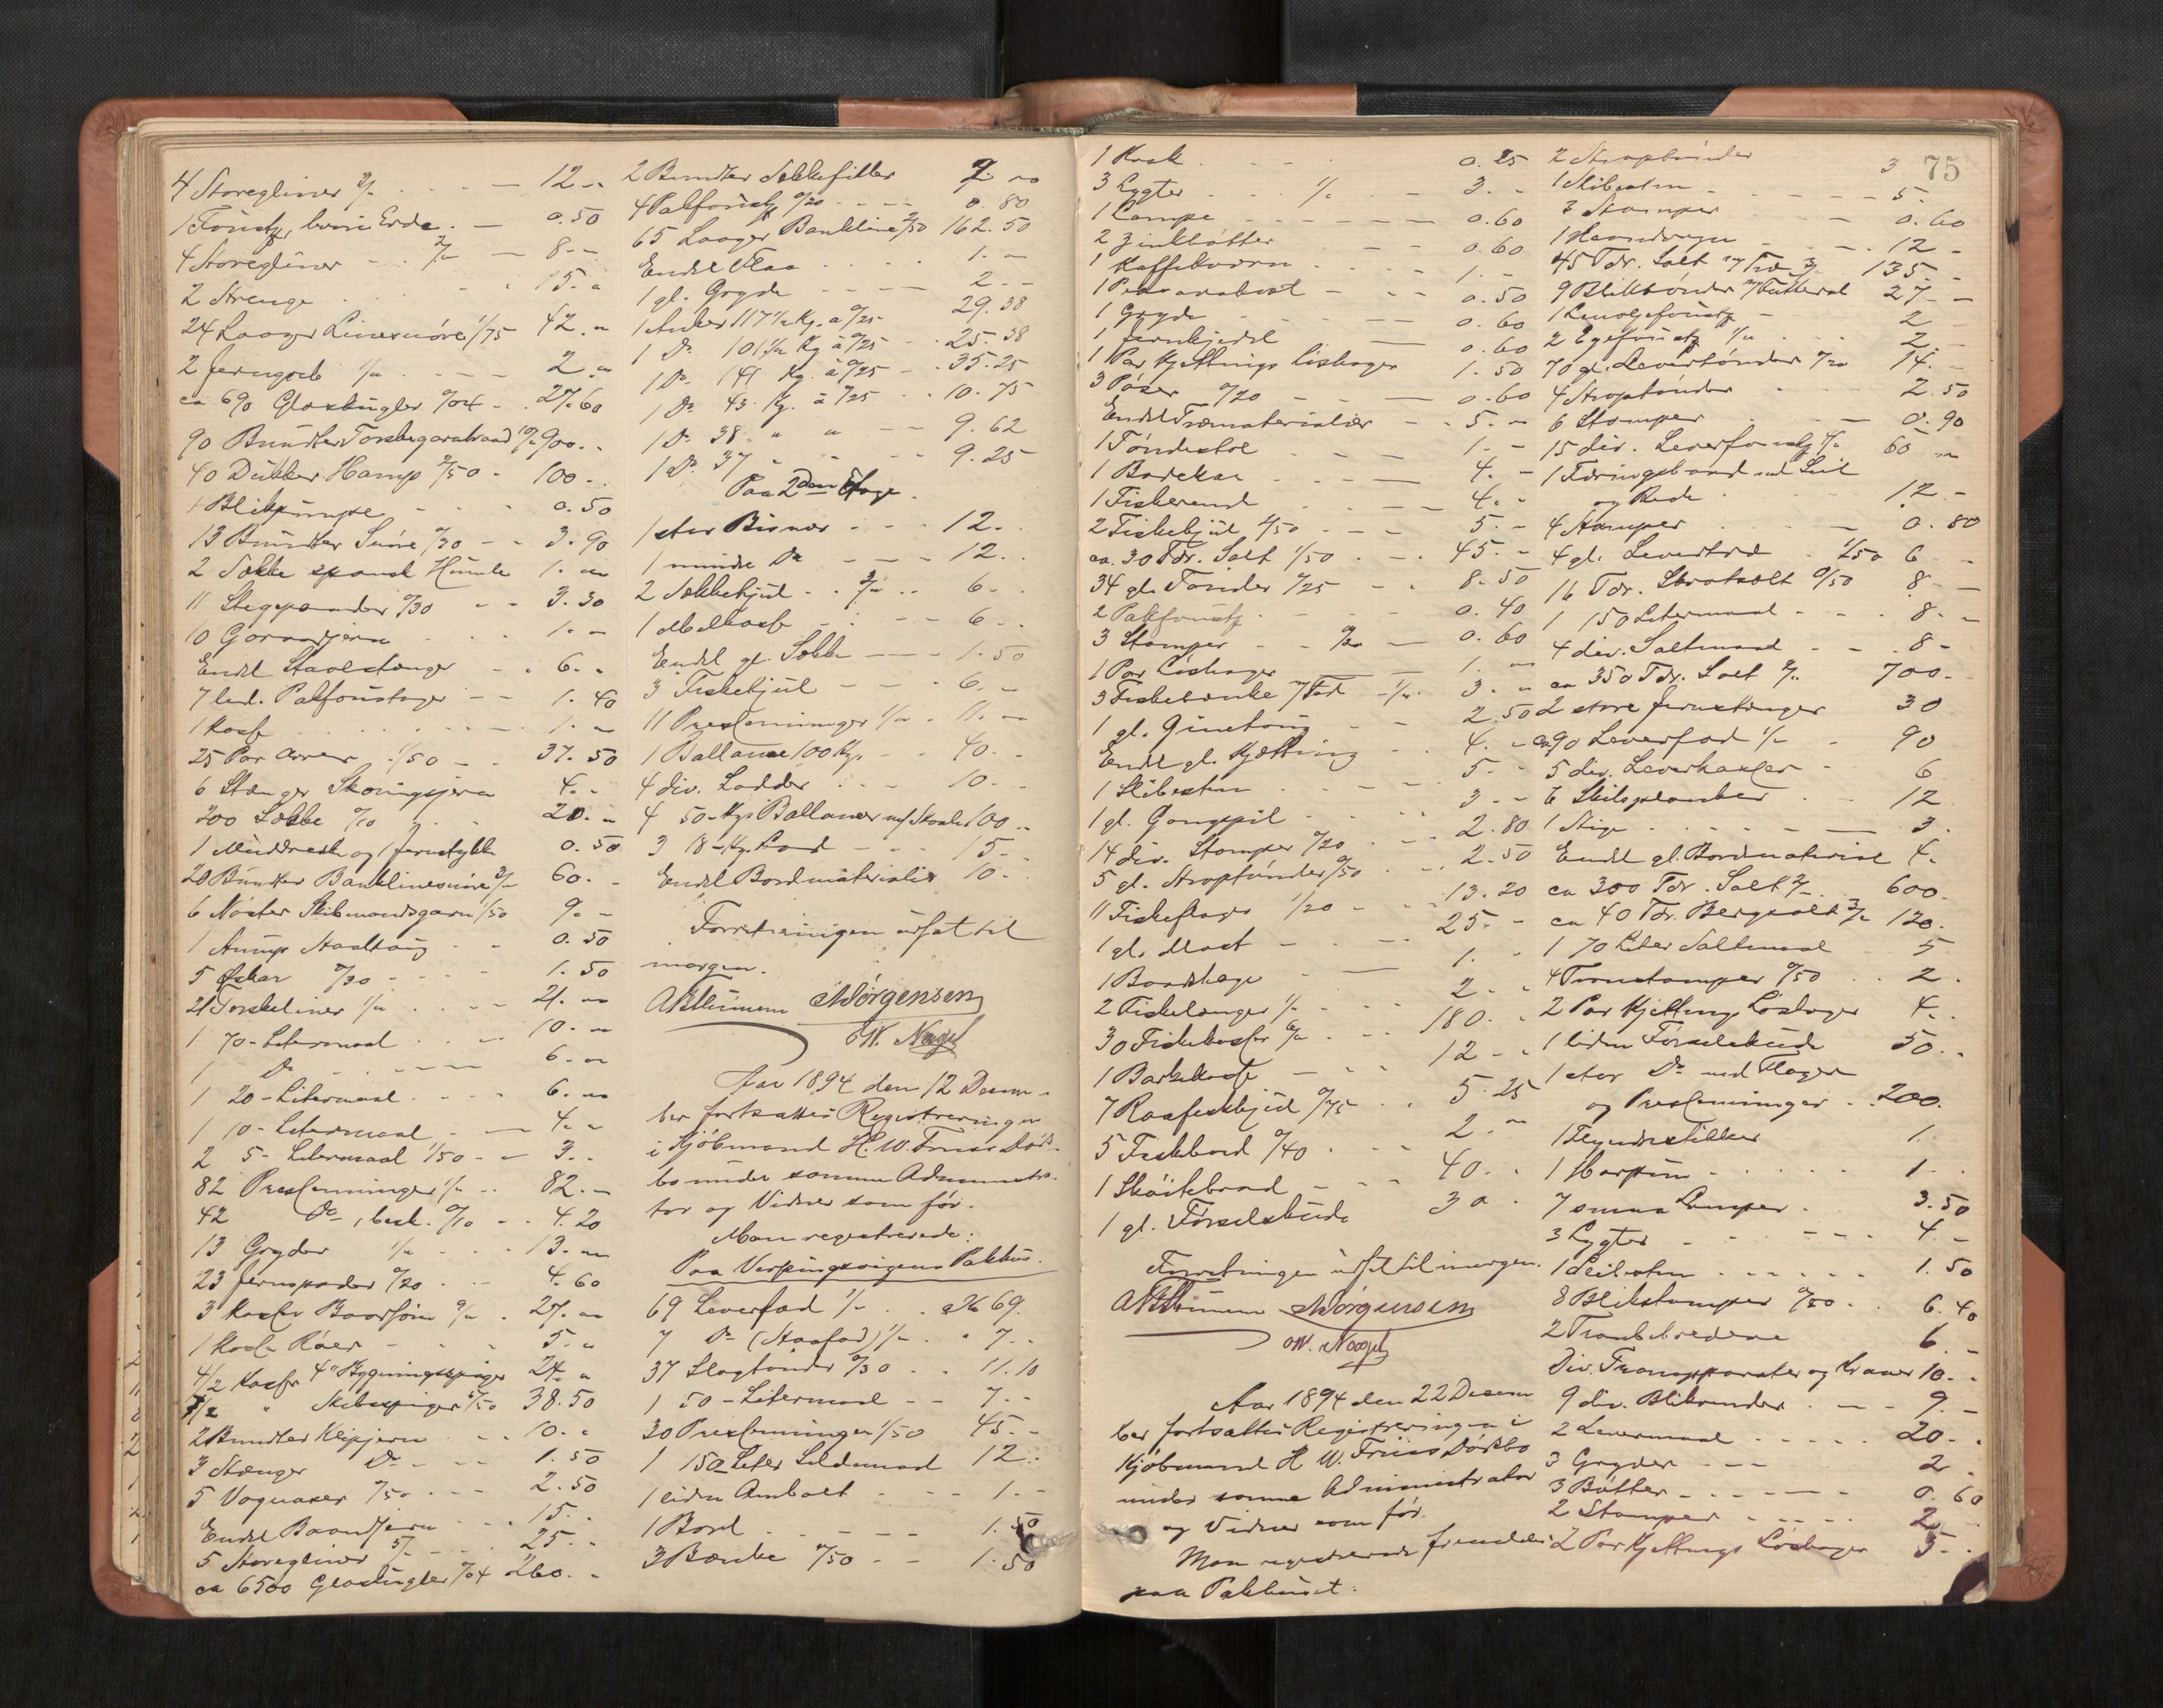 4 Storegliner 3/- 12 -
1 Foustg, brun Erde. 0.50
4 Storegliner 2/- 8 -
2 Strenge 15. -
24 Laager Linesnöre 1/75 42. -
2 Jerngreb 1/- 2 -
ca 690 Glaskugler 0/04 27.60
90 Bundter Torskegarntraad 10/- 900. -
40 Dukker Hamp 2/50 100 -
1 Blikpumpe 0.50
13 Bundter Snöre 0/30 3.90
2 Sække spansk Humle 1. -
11 Stegepander 0/30 3.30
10 Goraadjern 1. -
Endel Staalstænger 6. -
7 led. Pakfoustager 1.40
1 Kasse 1. -
25 Par Aarer 1/50 37.50
6 Stænger Skoningsjern 4. -
200 Sække 0/10 20. -
1 Muddreske og 1 Jernstykke 0.50
20 Bundter Banklinesnöre 3/- 60. -
6 Nöster Skibmandsgarn 1/50 9. -
1 Stump Staaltoug 0.50
5 Öskar 0/30 1.50
21 Torskeliner 1/- 21. -
1 70-Litermaal 10. -
1 Do 6. -
1 20-Litermaal 6. -
1 10-Litermaal 4. -
2 5-Litermaal 1/50 3. -
82 Presenninger 1/- 82. -
42 Do, besk. 0/10 4.20
13 Gryder 1/- 13. -
23 Jernspader 0/20 4.60
3 Kasser Baadsöm 9/- 27. -
1 Kasse Röer 5. -
4/2 Kasser 4" Bygningsspiger 24. -
7/2 " Skibsspiger 5/50 38.50
2 Bundter Kleipjern 10. -
3 Stænger Do 1.50
5 Vognaxer 0/50 2.50
Endel Baandjern 15. -
5 Storegliner 5/- 25. -
ca 6500 Glaskugler 0/04 260. -
2 Bundter Sækkefiller 2. -
4 Pakfoustg 0/20 0.80
65 Laager Bankline 2/50 162.50
Endel Flaa 1. -
1 gl. Gryde 2 -
1 Anker 117 1/2 Kg. a 0/25 29.38
1 Do 101 1/2 Kg a 0/25 25.38
1 Do 141 Kg. a 0/25 35.25
1 Do 43 Kg. a 0/25 10.75
1 Do 38 " " 9.62
1 Do 37 " " 9.25
Paa 2den Etage.
1 stor Bismer 12.
1 mindre Do 12.
2 Sækkehjul 3/- 6 -
1 Melkasse 6 -
Endel gl. Sække 1.50
3 Fiskehjul 6. -
11 Presenninger 1/- 11. -
1 Ballance 100 Kgs 40. -
4 div. Lodder 10. -
4 50-Kgs Ballancer m/ Skaaler 100 -
3 18-Kg. Lod 15 -
Endel Bordmaterialier 10. -
Forretningen udsat til
morgen.
A Blhumm MJörgensen
O.W. Nagel
Aar 1894 den 12 Decem-
ber fortsattes Registreringen
i Kjöbmand H. W. Friis's Döds-
bo under samme Administra-
tor og Vidner som för.
Man registrerede:
Paa Verpingsvigens Pakhus.
69 Leverfad 1/- Kr 69.
7 Do (Staafad) 1/- 7. -
37 Slagtönder 0/30 11.10
1 50-Litermaal 7. -
30 Presenninger 1/50 45. -
1 150 Liter Sildemaal 12. -
1 liden Ambolt 1. -
1 Bord 1.50
3 Bænke 0/50 1.50
75
1 Kask 0.25
3 Lygter 1/- 3. -
1 Lampe 0.60
2 Zinkbötter 0.60
1 Kaffekværn 1. -
0.50
1 Gryde 0.60
1 Jernkjedel 0.60
1 Par Kjettings Löshager 1.50
3 Pöser 0/20 0.60
Endel Træmaterialier 5. -
1 Töndestol 1. -
1 Badekar 4. -
1 Fiskerend 4. -
2 Fiskehjul 2/50 5. -
ca. 30 Tdr. Salt 1/50 45. -
34 gl. Tönder 0/25 8.50
2 Pakfoustg 0.40
3 Stamper 0/20 0.60
1 Par Löshager 1. -
3 Fiskebænke m/ Fad 1/- 3. -
1 gl. Ginetoug 2.50
Endel gl. Kjætting 4. -
1 Skibsovn 5. -
1 gl. Gangspil 3. -
14 div. Stamper 0/20 2.80
5 gl. Stroptönder 0/50 2.50
11 Fiskeflager 1/20 13.20
1 gl. Mast 25 -
1 Baadshage 1. -
2 Fiskelænger 1/- 2. -
30 Fiskekasser 6/- 180. -
1 Barkekasse 12 -
7 Raafiskhjul 0/75 5.25
5 Fiskbord 0/40 2. -
1 Sköitebaad 40. -
1 gl. Förselsbaad 30.
Forretningen udsat til morgen.
A Blhumm MJörgensen
O.W. Nagel
Aar 1894 den 22 Decem
ber fortsattes Registreringen i
Kjöbmand H. W. Friis's Dödsbo
under samme Administrator
og Vidner som för.
Man registrerede fremdeles
paa Pakhuset:
2 Stroptönder 3
1 Skibsovn 5. -
3 Stamper 0.60
1 Haandvogn 12 -
45 Tdr. Salt m/ Træ 3/- 135. -
9 Bliktönder m/ Futteral 27 -
1 Linoljefoustg 2
2 Egefoustg 1/- 2. -
70 gl. Levertönder 0/20 14. -
4 Stroptönder 2.50
6 Stamper 0.90
15 div. Leverfoustg 4/- 60 -
1 Færingsbaad med Seil
og Rede 12. -
4 Stamper 0.80
4 gl. Leverfad 1/50 6 -
16 Tdr. Skrotsalt 0/50 8 -
1 150 Litermaal 8. -
4 div. Saltmaal 8 -
ca 350 Tdr. Salt 2/- 700. -
2 store Jernstænger 30
ca 90 Leverfad 1/- 90
5 div. Leverkasser 6
6 Skilsplanker 12
1 Stige 3.
Endel gl. Bordmateriale 4.
ca 300 Tdr. Salt 2/- 600.
ca 40 Tdr. Bergsalt 3/- 120.
1 70 Liter Saltmaal 5
4 Trænstamper 0/50 2.
2 Par Kjettings Löshager 4. -
1 liden Förselsbaad 50. -
1 stor Do med Flager
og Presenninger 200.
1 Flyndrestikker 1.
1 Harpun 1.
7 smaa Lamper 3.50
3 Lygter 4 -
1 Seilovn 1.50
8 Blikstamper 0/50 6.40
2 6. -
Div. Tranapparater og Kraner 10. -
9 div. Bliktönder 9. -
2 Levermaal 20 -
3 Gryder 2.
3 Bötter 0.60
2 Stamper 2 -
2 Par Kjettings Löshager 3. -